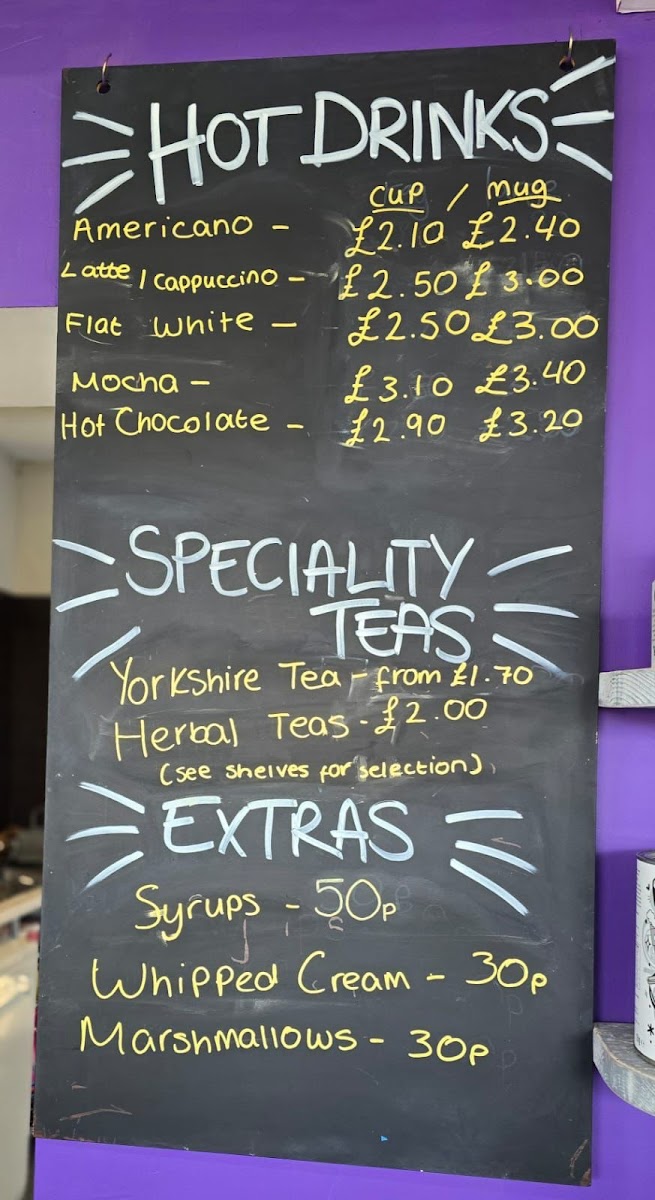 HOT DRINKS
cup / mug
Americano - £2.10 £2.40
Latte / cappuccino - £2.50 £3.00
Flat White - £2.50 £3.00
Mocha - £3.10 £3.40
Hot Chocolate - £2.90 £3.20
SPECIALITY
TEAS
Yorkshire Tea - from £1.70
Herbal Teas - £2.00
(see shelves for selection)
EXTRAS
Syrups - 50p
Whipped Cream - 30p
Marshmallows - 30p